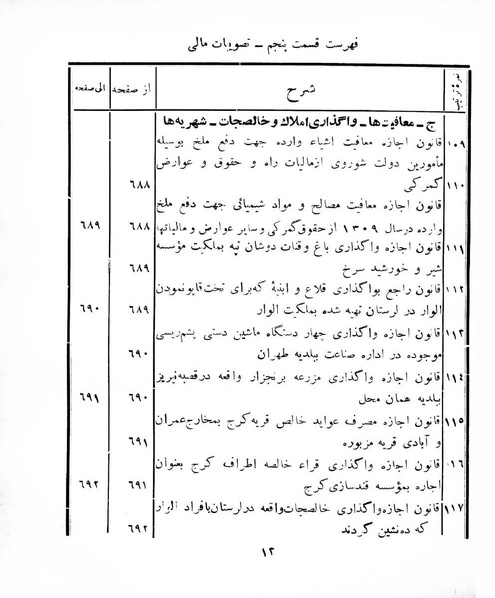 فهرست قسمت پنجم ـ تصویبات مالی
نمره ترتیب شرح از صفحه الی صفحه
ج ـ معافیت‌ها ـ واگذاری املاک و خالصجات ـ شهریه‌ها
۱۰۹ قانون اجازه معافیت اشیاء وارده جهت دفع ملخ بوسیله
مأمورین دولت شوروی ازمالیات راه و حقوق و عوارض
گمرکی ۶۸۸
۱۱۰
قانون اجازه معافیت مصالح و مواد شیمیائی جهت دفع ملخ
وارده درسال ۱۳۰۹ از حقوق گمرکی وسایر عوارض و مالیاتها ۶۸۸ ۶۸۹
۱۱۱ قانون اجازه واگذاری باغ و قنات دوشان تپه بملکیت مؤسسه
شیر و خورشید سرخ ۶۸۹
۱۱۲ قانون راجع بواگذاری قلاع و ابنیهٔ که‌برای تخت‌قاپونمودن
الوار در لرستان تهیه شده بملکیت الوار ۶۸۹ ۶۹۰
۱۱۳ قانون اجازه واگذاری چهار دستگاه ماشین دستی پشم‌ریسی
موجوده در اداره صناعت ببلدیه طهران ۶۹۰
۱۱۴ قانون اجازه واگذاری مزرعه برنجزار واقعه درقصبه‌نیریز
ببلدیه همان محل ۶۹۰ ۶۹۱
۱۱۵ قانون اجازه مصرف عواید خالص قریه‌کرج بمخارج‌عمران
و آبادی قریه مزبوره ۶۹۱
۱۱۶ قانون اجازه واگذاری قراء خالصه اطراف کرج بعنوان
اجاره بمؤسسه قندسازی‌کرج ۶۹۱ ۶۹۲
۱۱۷ قانون اجازه‌واگذاری خالصجات‌واقعه درلرستان‌بافراد الوار
که ده‌نشین گردند ۶۹۲
۱۲